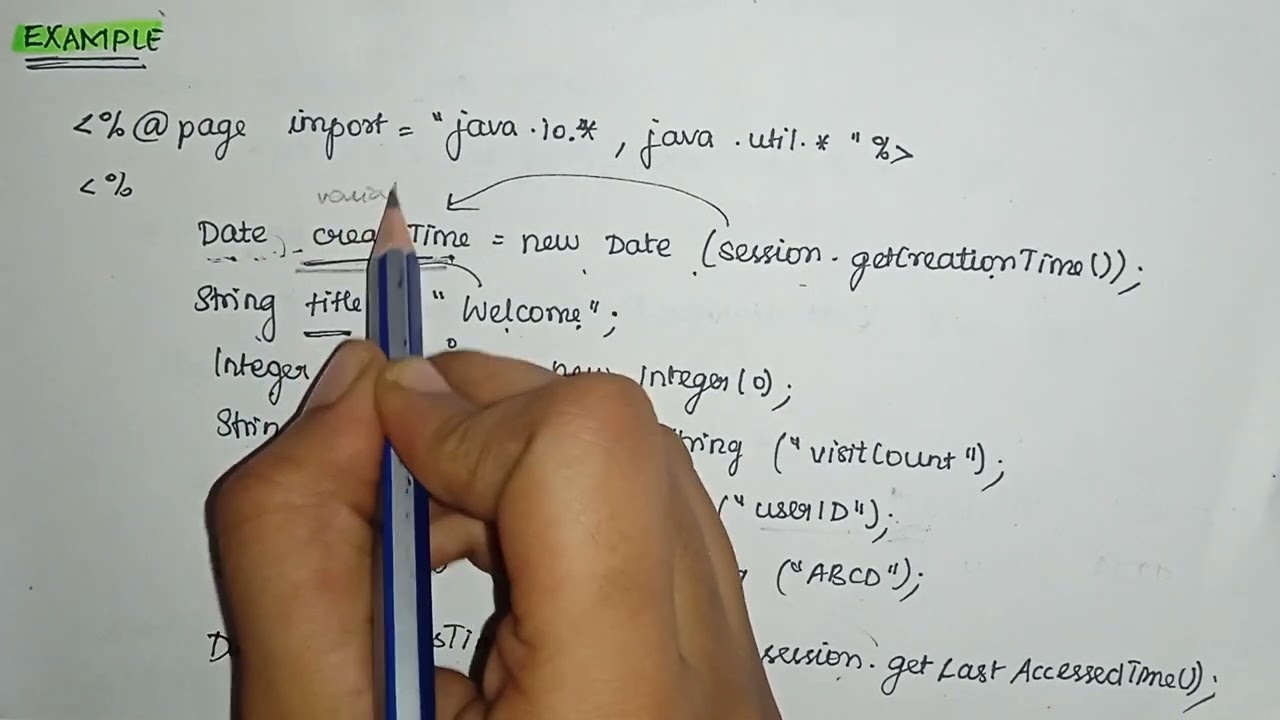 EXAMPLE
<%@ page import = "java.io.*, java.util.* "%>
<%
Date = new Date (session.getCreationTime());
String title "Welcome";
Integer new Integer(0);
("visitCount");
("userID");
("ABCD");
session.getLastAccessedTime();